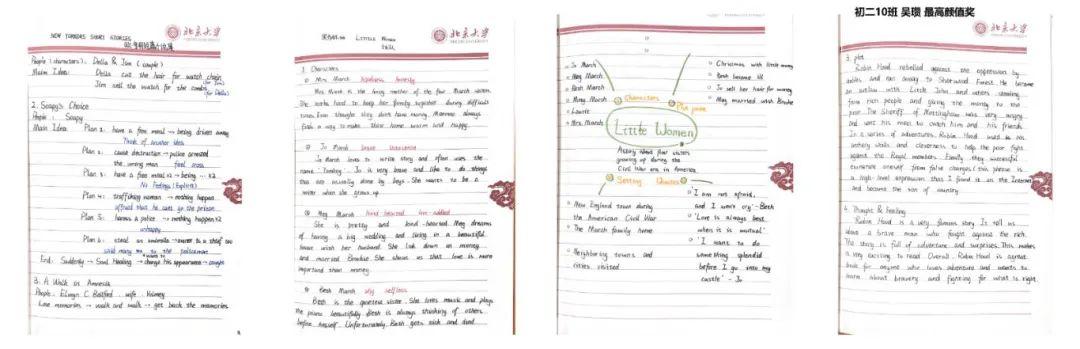 NEW YORKERS SHORT STORIES
北京大学
People (characters): Della & Jim (couple)
Main Idea: Della cut the hair for watch chain (for Jim)
Jim sell the watch for the combs (for Della)
2. Soapy's Choice
People: Soapy
Main Idea Plan 1: have a free meal → being driven away
Think of another idea
Plan 2: cause destruction → police arrested
the wrong man feel cross
Plan 3: have a free meal ×2 → being ... ×2
No Feelings (Explicit)
Plan 4: → nothing happen
afraid that he cans go the prison
Plan 5: harass a police → nothing happen ×2
unhappy
Plan 6: steal an umbrella →
said many to the policeman
End: Suddenly → Soul Healing → change his appearance → caught
3. A Walk in Amnesia
People: Elwyn C. Bellford. wife.
Lose memories → walk and walk → get back the memories
Little Women
北京大学
1. Characters
① Mrs March kindness honesty
Mrs March is the loving mother of the four March sisters.
She works hard to keep her family together during difficult
times. Even though they don't have money, Marmee always
finds a way to make their home warm and happy.
② Jo March brave
Jo March loves to write story and often uses the
name "Tomboy". Jo is very brave and like to do things
that are usually done by boys. She wants to be a
writer when she grows up.
③ Meg March kind-hearted
She is pretty and kind-hearted. Meg dreams
of having a big wedding and living in a beautiful
house with her husband. She look down on money
and married Brooke. She shows us that love is more
important than money.
④ Beth March shy selfless
Beth is the quietest sister. She loves music and plays
the piano beautifully. Beth is always thinking of others
before herself. Unfortunately, Beth gets sick and died
Jo March
Meg March
Beth March
Amy March
Laurie
Mrs March
Characters
Christmas with little money
Beth become ill
Jo sell her hair for money
Meg married with Brooke
The plot
Little Women
A story about four sisters
growing up during the
Civil War era in America.
Setting
Quotes
New England town during
the American Civil War
The March family home
Neighboring towns and
cities visited
'I am not afraid,
and I won't cry' - Beth
'Love is always best
when it is mutual'
'I want to do
something splendid
before I go into my
castle' - Jo
初二10班 吴璎 最高颜值奖
北京大学
3. plot
Robin Hood rebelled against the oppression by
nobles and ran away to Sherwood Forest. He became
an outlaw with Little John and others stealing
from rich people and giving the money to the
poor. The Sheriff of Nottingham was very angry
and sent his men to catch him and his friends.
In a series of adventures, Robin Hood used his
archery skills and cleverness to help the poor fight
against the Royal members. Finally, they successful
oneself from false charges (this phrase is
a high-level expression that I found it on the Internet)
and became the son of country.
4. Thought & Feeling
Robin Hood is a very famous story. It tell us
about a brave man who fought against the bravery.
The story is full of adventure and surprises. This makes
it very exciting to read. Overall, Robin Hood is a great
book for anyone who loves adventure and wants to
learn about bravery and fighting for what is right.